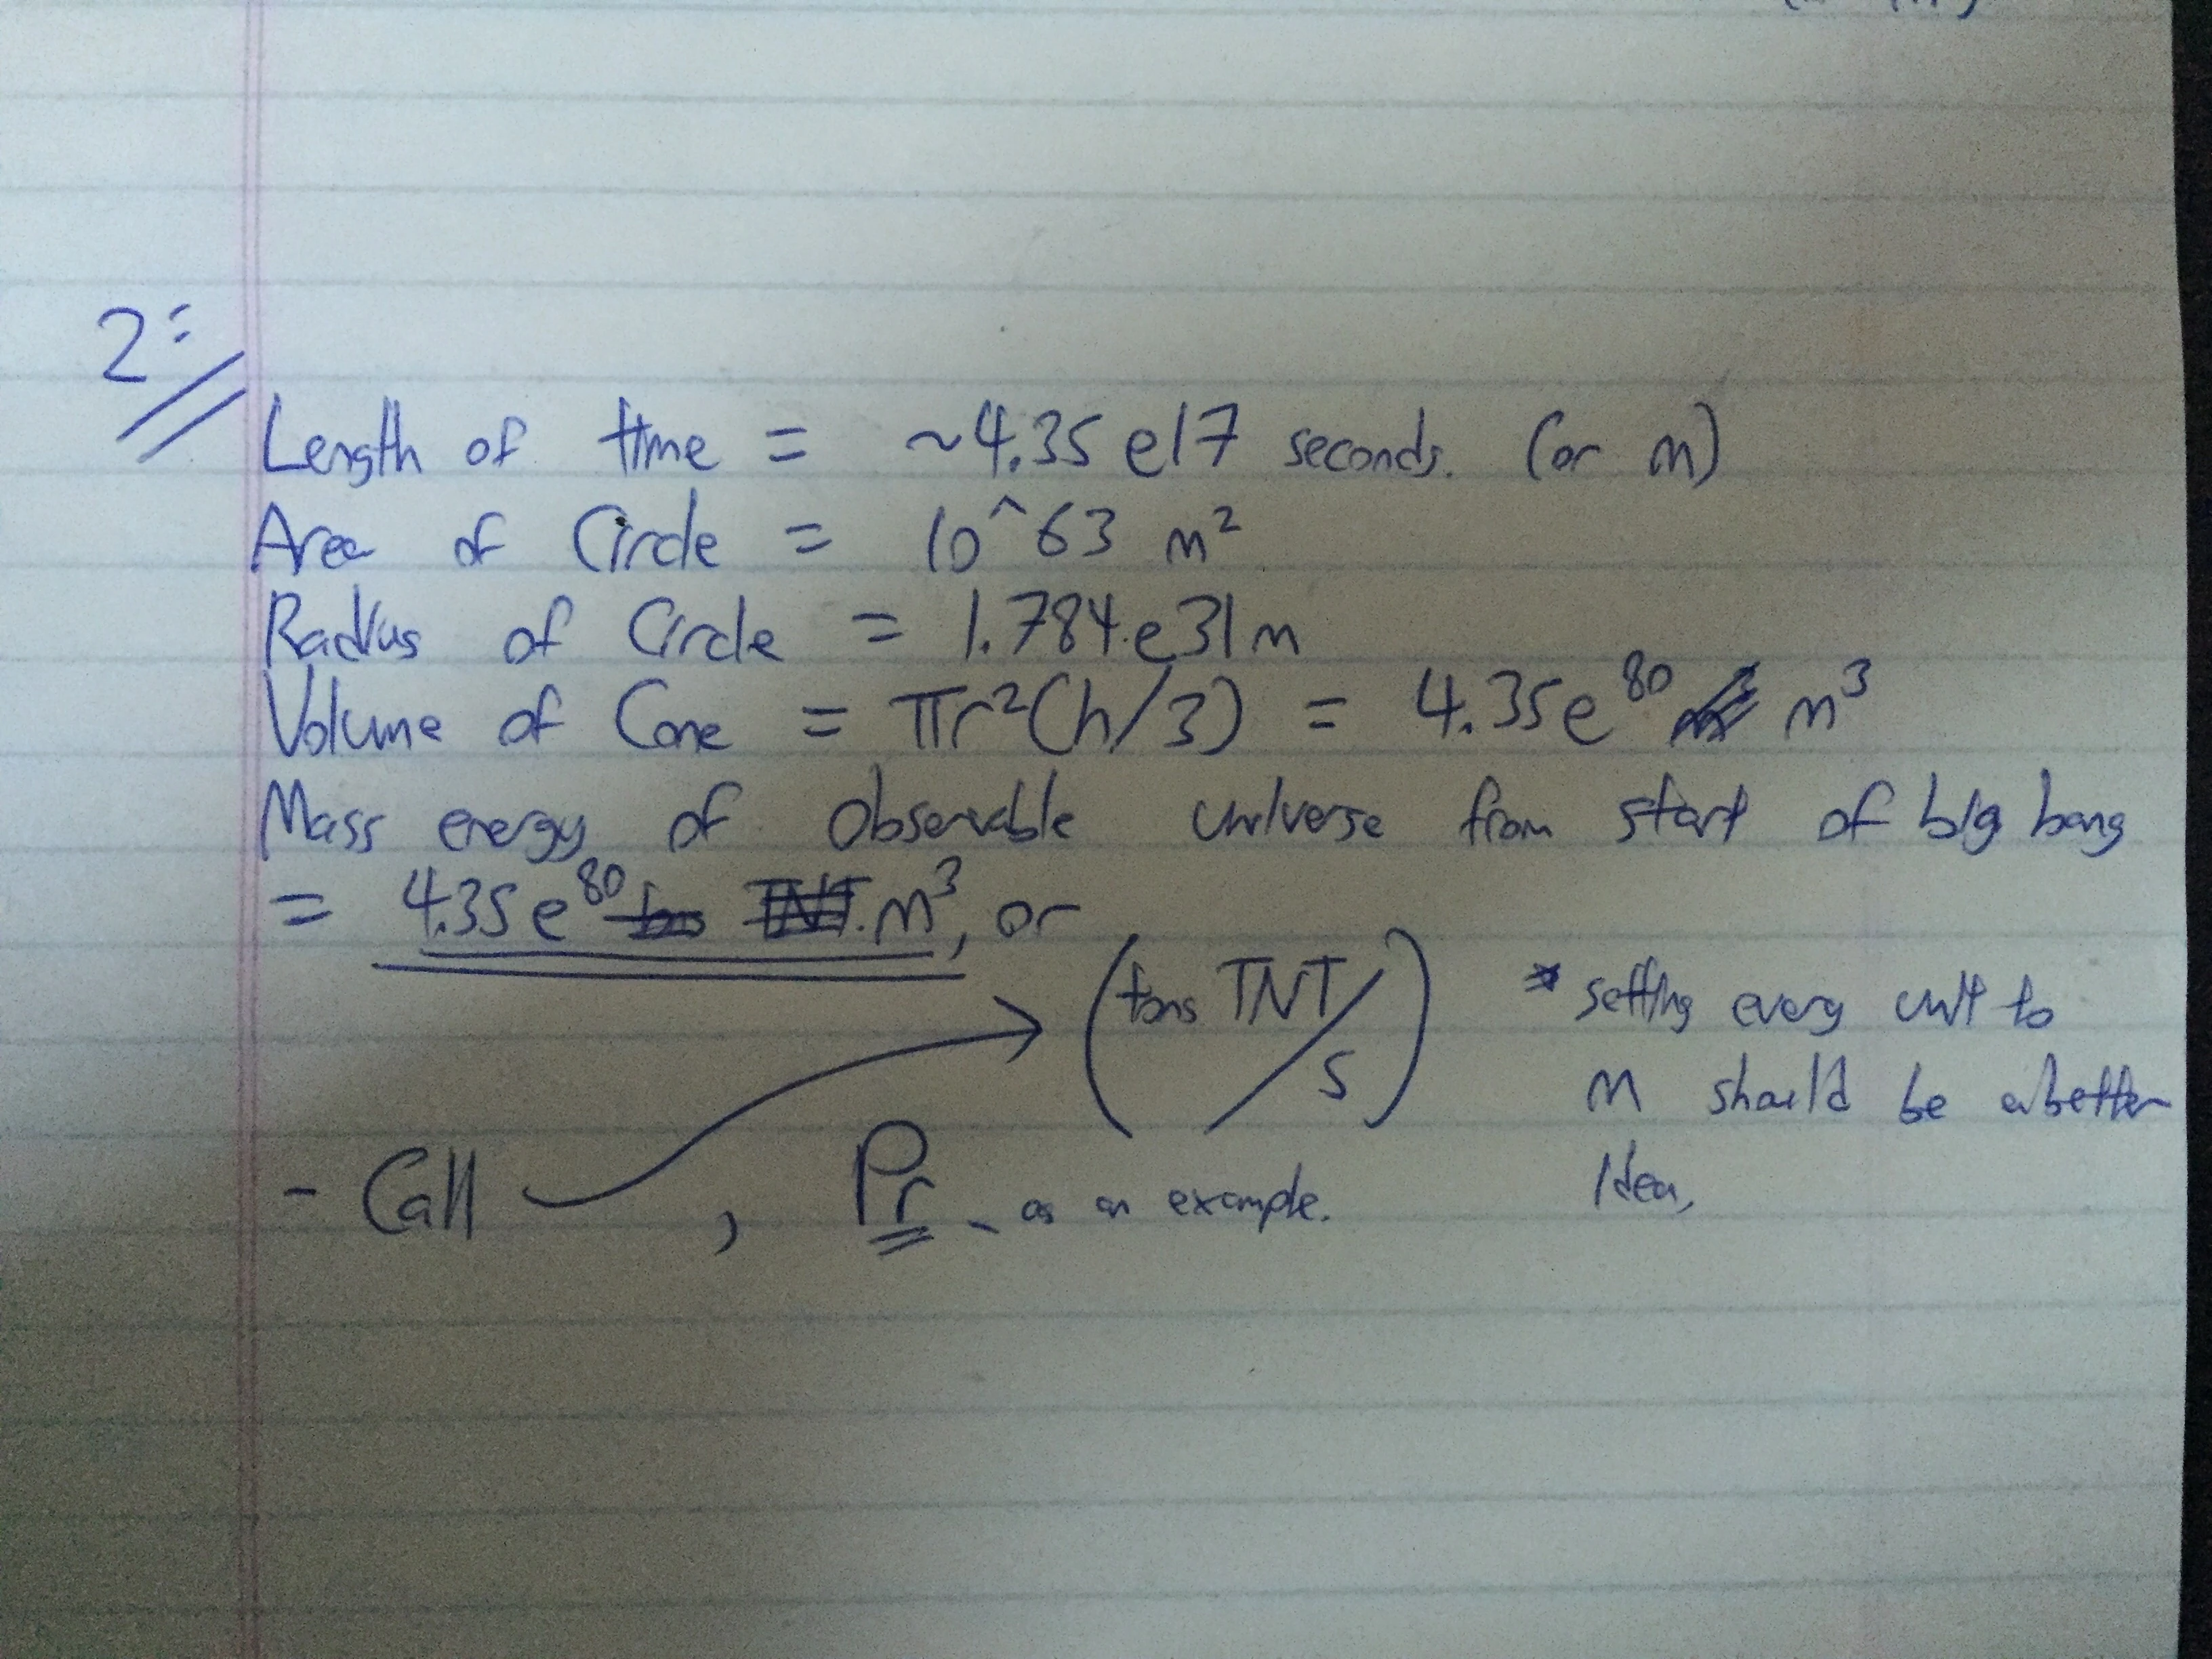 2:
Length of time = ~4.35 e17 seconds. (or m)
Area of Circle = 10^63 m²
Radius of Circle = 1.784.e31m
Volume of Cone = πr²(h/3) = 4.35e⁸⁰ m³
Mass energy of observable universe from start of big bang
= 4.35e⁸⁰ tons TNT. m³, or
(tons TNT/s)
* setting every unit to
m should be a better
idea,
- Call , Pr - as an example.